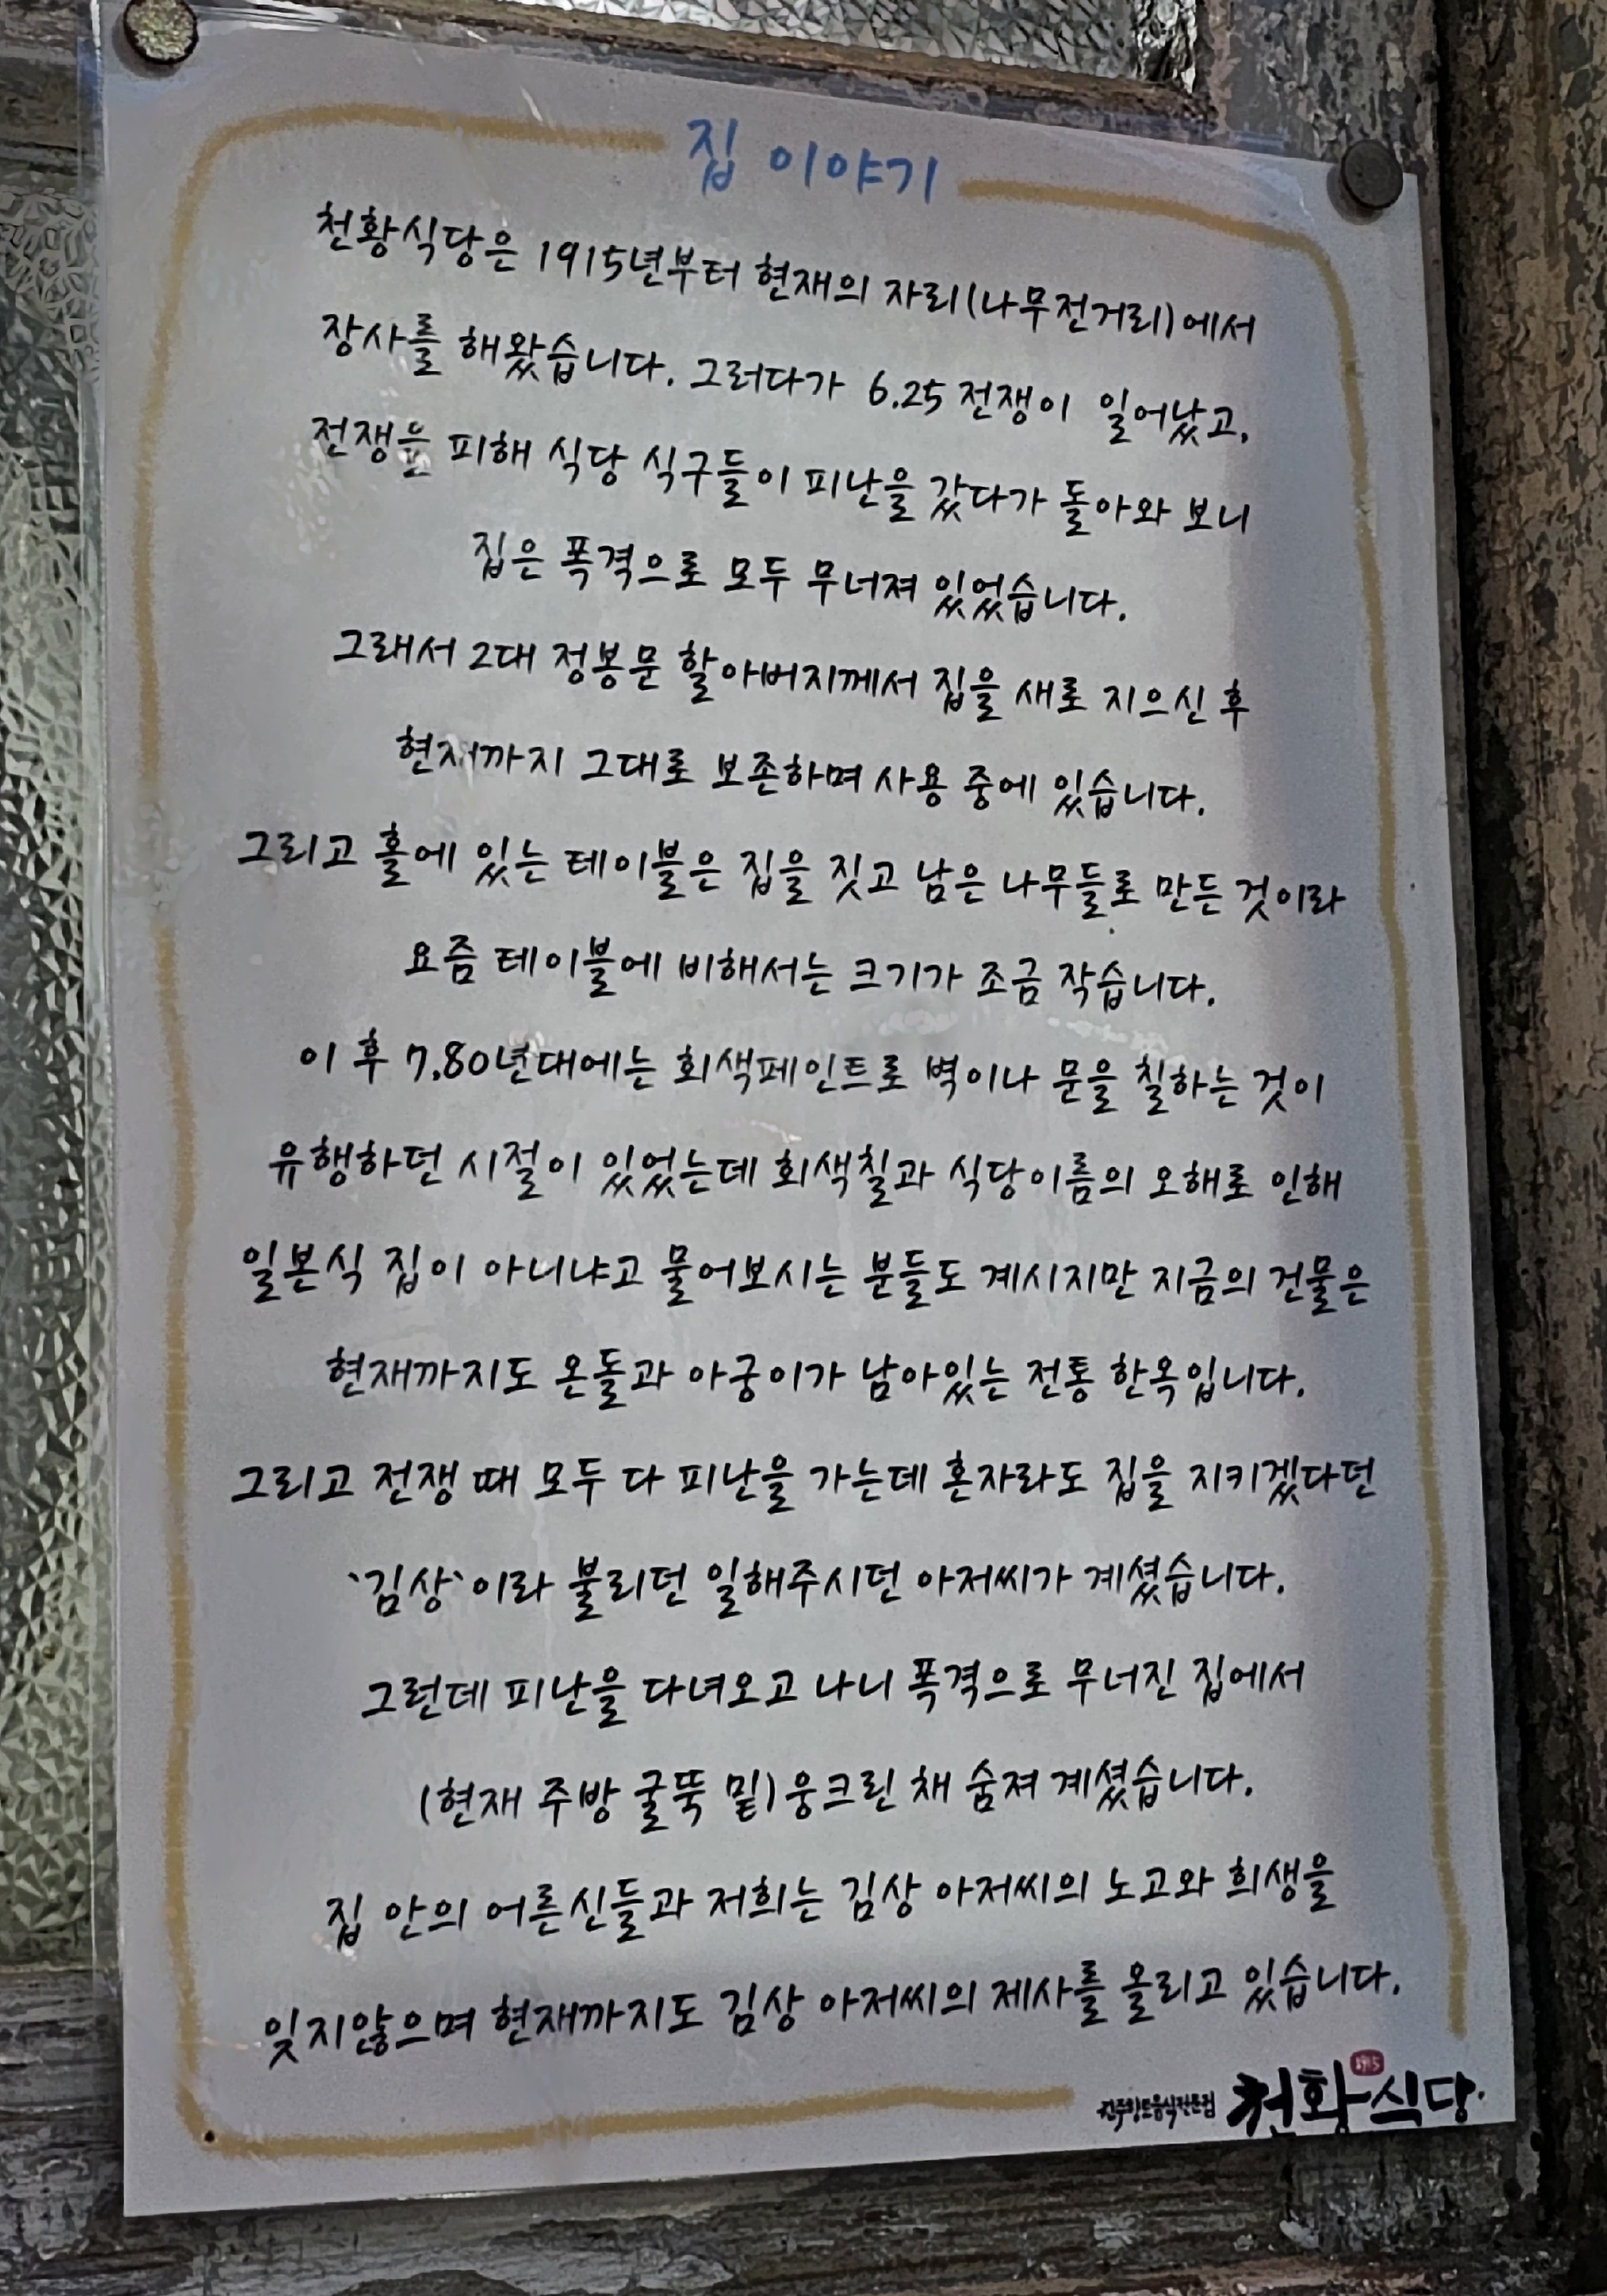 집 이야기
천황식당은 1915년부터 현재의 자리(나무전거리)에서
장사를 해왔습니다. 그러다가 6.25 전쟁이 일어났고,
전쟁을 피해 식당 식구들이 피난을 갔다가 돌아와 보니
집은 폭격으로 모두 무너져 있었습니다.
그래서 2대 정봉문 할아버지께서 집을 새로 지으신 후
현재까지 그대로 보존하며 사용 중에 있습니다.
그리고 홀에 있는 테이블은 집을 짓고 남은 나무들로 만든 것이라
요즘 테이블에 비해서는 크기가 조금 작습니다.
이 후 7.80년대에는 회색페인트로 벽이나 문을 칠하는 것이
유행하던 시절이 있었는데 회색칠과 식당이름의 오해로 인해
일본식 집이 아니냐고 물어보시는 분들도 계시지만 지금의 건물은
현재까지도 온돌과 아궁이가 남아있는 전통 한옥입니다.
그리고 전쟁 때 모두 다 피난을 가는데 혼자라도 집을 지키겠다던
`김상`이라 불리던 일해주시던 아저씨가 계셨습니다.
그런데 피난을 다녀오고 나니 폭격으로 무너진 집에서
(현재 주방 굴뚝 밑)웅크린 채 숨져 계셨습니다.
집 안의 어른신들과 저희는 김상 아저씨의 노고와 희생을
잊지않으며 현재까지도 김상 아저씨의 제사를 올리고 있습니다.
진주향토음식전문점 천황식당 1915